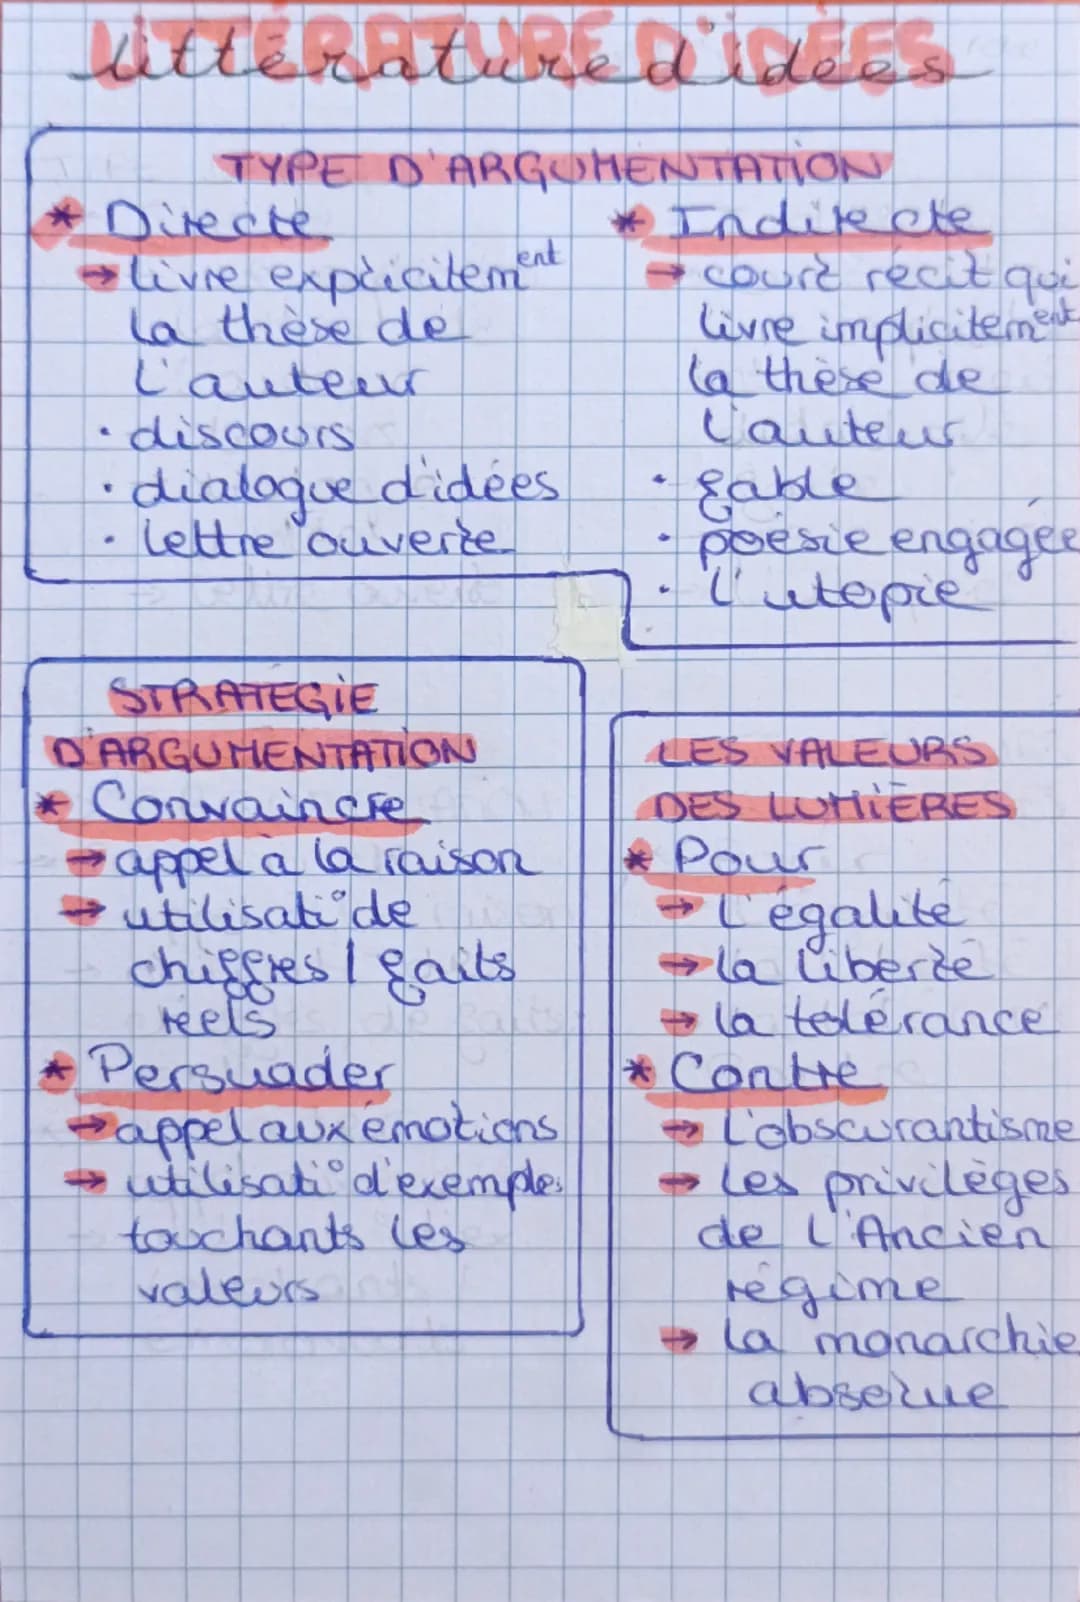 LITTÉRATURE D'IDÉES
littérature d'idées
TYPE D'ARGUMENTATION
* Directe
→ livre explicitem^ent
la thèse de
l'auteur
• discours
• dialogue d'idées
• lettre ouverte
* Indirecte
→ court récit qui
livre implicitem^ent
la thèse de
l'auteur
• fable
• poésie engagée
• l'utopie
STRATEGIE
D'ARGUMENTATION
* Convaincre
→ appel à la raison
→ utilisati° de
chiffres / faits
réels
* Persuader
→ appel aux émotions
→ utilisati° d'exemples
touchants les
valeurs
LES VALEURS
DES LUMIÈRES
* Pour
→ l'égalité
→ la liberté
→ la tolérance
* Contre
→ l'obscurantisme
→ les privilèges
de l'Ancien
régime
→ la monarchie
absolue